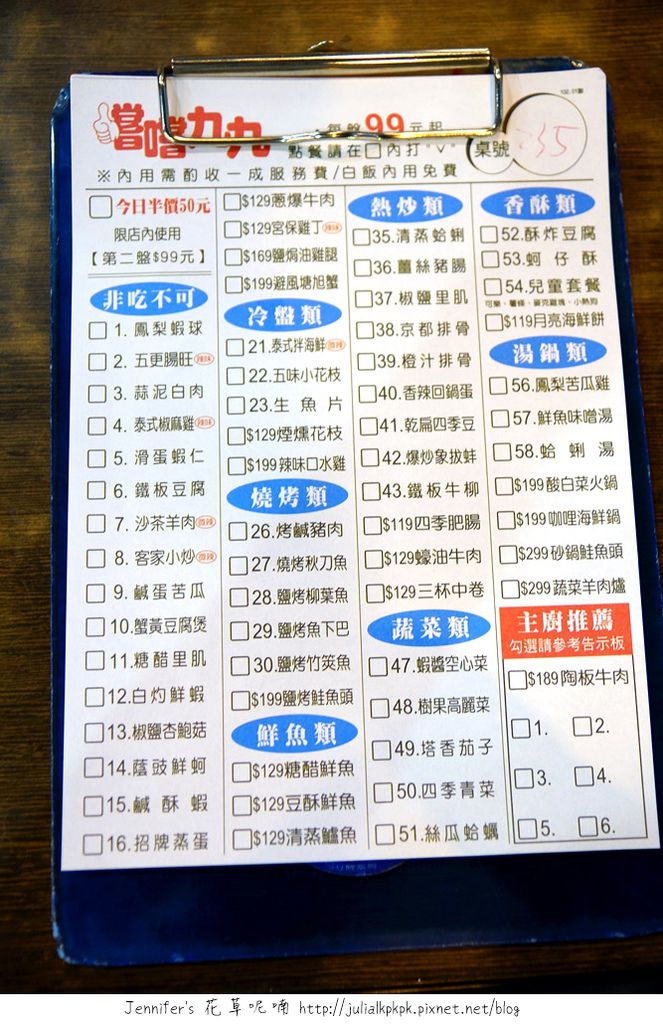 嚐嚐九九
每盤99元起
102.01製
點餐請在□內打"ˇ"
桌號
35
※內用需酌收一成服務費/白飯內用免費
□今日半價50元
限店內使用
【第二盤$99元】
非吃不可
□1.鳳梨蝦球
□2.五更腸旺 辣味
□3.蒜泥白肉
□4.泰式椒麻雞 辣味
□5.滑蛋蝦仁
□6.鐵板豆腐
□7.沙茶羊肉 微辣
□8.客家小炒 微辣
□9.鹹蛋苦瓜
□10.蟹黃豆腐煲
□11.糖醋里肌
□12.白灼鮮蝦
□13.椒鹽杏鮑菇
□14.蔭豉鮮蚵
□15.鹹酥蝦
□16.招牌蒸蛋
□$129蔥爆牛肉
□$129宮保雞丁 辣味
□$169鹽焗油雞腿
□$199避風塘旭蟹
冷盤類
□21.泰式拌海鮮 微辣
□22.五味小花枝
□23.生魚片
□$129煙燻花枝
□$199辣味口水雞
燒烤類
□26.烤鹹豬肉
□27.燒烤秋刀魚
□28.鹽烤柳葉魚
□29.鹽烤魚下巴
□30.鹽烤竹筴魚
□$199鹽烤鮭魚頭
鮮魚類
□$129糖醋鮮魚
□$129豆酥鮮魚
□$129清蒸鱸魚
熱炒類
□35.清蒸蛤蜊
□36.薑絲豬腸
□37.椒鹽里肌
□38.京都排骨
□39.橙汁排骨
□40.香辣回鍋蛋
□41.乾扁四季豆
□42.爆炒象拔蚌
□43.鐵板牛柳
□$119四季肥腸
□$129蠔油牛肉
□$129三杯中卷
蔬菜類
□47.蝦醬空心菜
□48.樹果高麗菜
□49.塔香茄子
□50.四季青菜
□51.絲瓜蛤蠣
香酥類
□52.酥炸豆腐
□53.蚵仔酥
□54.兒童套餐
可樂、薯條、麥克雞塊、小熱狗
□$119月亮海鮮餅
湯鍋類
□56.鳳梨苦瓜雞
□57.鮮魚味噌湯
□58.蛤蜊湯
□$199酸白菜火鍋
□$199咖哩海鮮鍋
□$299砂鍋鮭魚頭
□$299蔬菜羊肉爐
主廚推薦
勾選請參考告示板
□$189陶板牛肉
□1. □2.
□3. □4.
□5. □6.
Jennifer's 花草呢喃 http://julialkpkpk.pixnet.net/blog